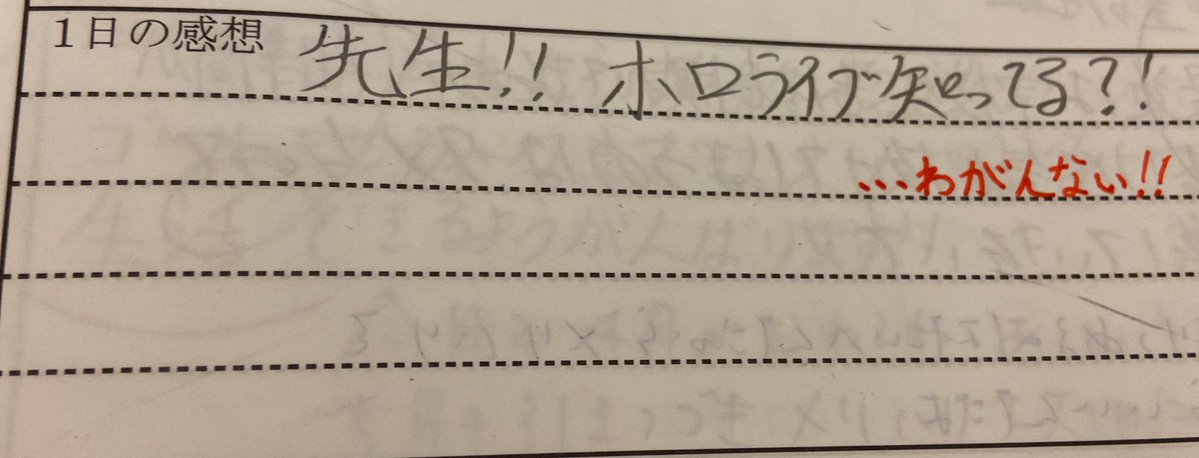 1日の感想
先生!! ホロライブ知ってる?!
...わがんない!!